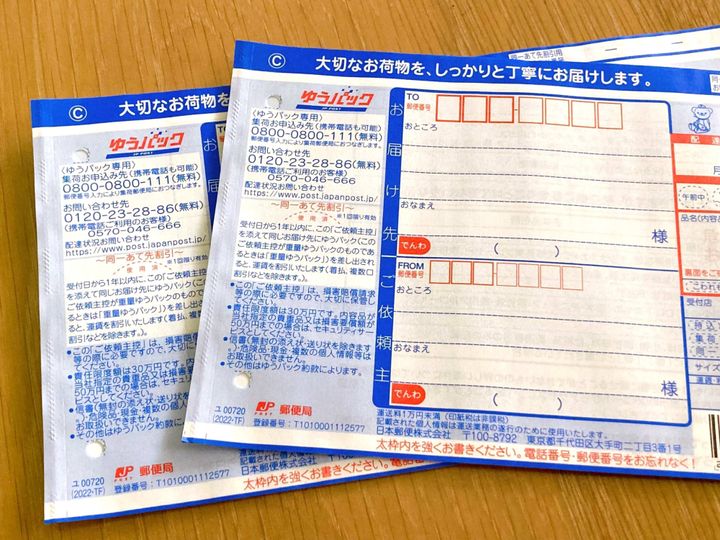 同一あて先割引用
Ⓒ 大切なお荷物を、しっかりと丁寧にお届けします。
ゆうパック
JP POST
(ゆうパック専用)
集荷お申込み先(携帯電話も可能)
0800-0800-111(無料)
郵便番号入力により集荷郵便局におつなぎします。
お問い合わせ先
0120-23-28-86(無料)
(携帯電話ご利用のお客様)
0570-046-666
配達状況お問い合わせ
https://www.post.japanpost.jp/
～同一あて先割引～
使用済 ※1回限り有効
受付日から1年以内に、この「ご依頼主控」
を添えて同じお届け先にゆうパック(この
ご依頼主控が重量ゆうパックのもので
あるときは「重量ゆうパック」)を差し出され
ると、運賃を割引いたします(着払、複数口
割引などを除きます。)。
●この「ご依頼主控」は、損害賠償請求
等の際に必要ですので、大切に保管し
てください。
●責任限度額は30万円です。内容品が
当社指定の貴重品又は損害要償額が
50万円までの場合は、セキュリティサー
ビスとしてください。
●信書(無封の添え状・送り状を除きます
)・危険品・現金・複数の個人情報等は
お取扱いできません。
●その他はゆうパック約款によります。
ユ00720
(2022-TF)
JP 郵便局
POST
登録番号:T1010001112577
お届け先
TO
郵便番号
おところ
おなまえ
様
でんわ
( )
ご依頼主
FROM
郵便番号
おところ
おなまえ
様
でんわ
( )
運送料1万円未満(印紙税は非課税)
記載された個人情報は運送業務の遂行のために使用いたします。
日本郵便株式会社 〒100-8792 東京都千代田区大手町二丁目3番1号
太枠内を強くお書きください。電話番号・郵便番号をお忘れなく!
配達
月
午前中
品名(内容品
裏面をご
受付店
Ⓒ 大切なお荷物を
ゆうパック
JP POST
(ゆうパック専用)
集荷お申込み先(携帯電話も可能)
0800-0800-111(無料)
郵便番号入力により集荷郵便局におつなぎします。
お問い合わせ先
0120-23-28-86(無料)
(携帯電話ご利用のお客様)
0570-046-666
配達状況お問い合わせ
https://www.post.japanpost.jp/
～同一あて先割引～
使用済 ※1回限り有効
受付日から1年以内に、この「ご依頼主控
を添えて同じお届け先にゆうパック(
ご依頼主控が重量ゆうパックのもの
あるときは「重量ゆうパック」)を差し出
ると、運賃を割引いたします(着払、複
割引などを除きます。)。
●この「ご依頼主控」は、損害賠償
等の際に必要ですので、大切に
てください。
●責任限度額は30万円です。内
当社指定の貴重品又は損害要
50万円までの場合は、セキュリ
ビスとしてください。
●信書(無封の添え状・送り状を
)・危険品・現金・複数の個人
お取扱いできません。
●その他はゆうパック約款に
ユ00720
(2022-TF)
JP 郵便局
POST
登録番号:T1010001112577
運送料1
記載された
日本郵便株式会社
太枠内を強くお書きください。